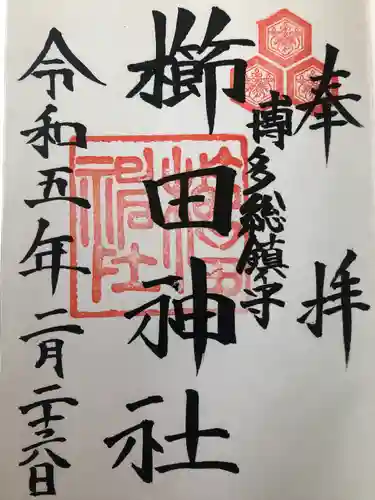 奉拝
博多総鎮守
櫛田神社
櫛田神社
令和五年二月二十六日